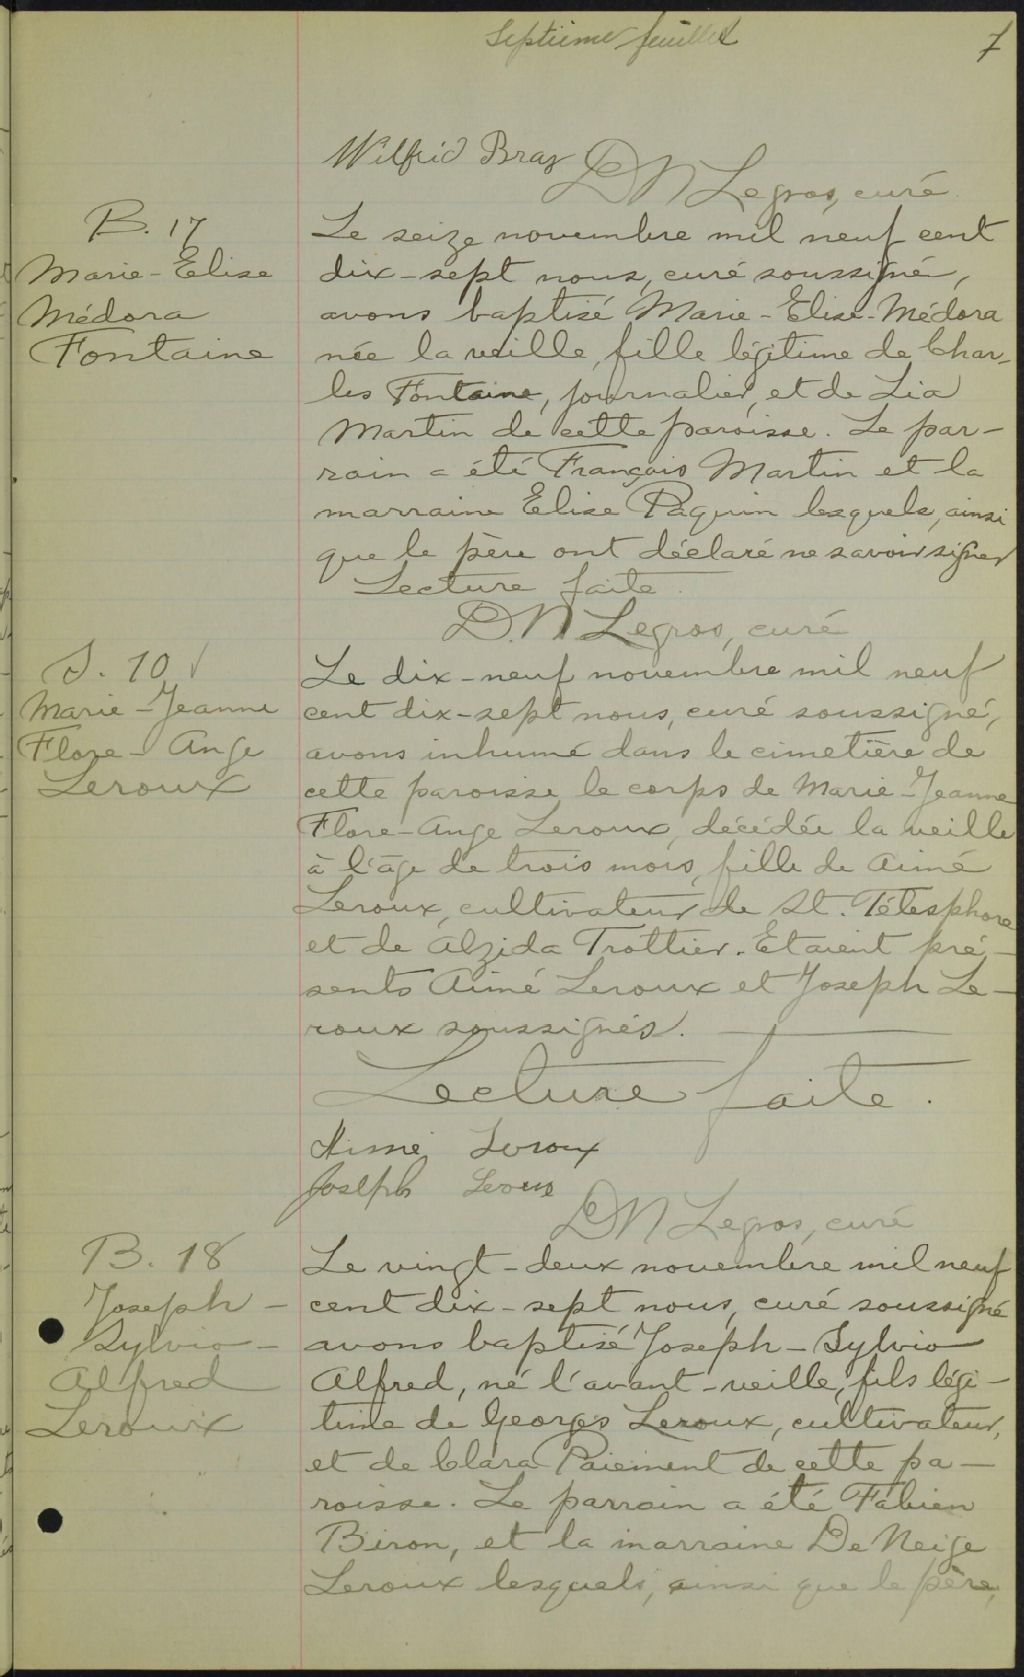 Septième feuillet 7
Wilfrid Braz
D N Legros, curé
B. 17
Marie-Elise
Médora
Fontaine
Le seize novembre mil neuf cent
dix-sept nous, curé soussigné,
avons baptisé Marie-Elise-Médora
née la veille, fille légitime de Char-
les Fontaine, journalier, et de Lia
Martin de cette paroisse. Le par-
rain a été François Martin et la
marraine Elise Paquin lesquels, ainsi
que le père ont déclaré ne savoir signer
Lecture faite.
D. N Legros, curé
S. 10
Marie-Jeanne
Flore-Ange
Leroux
Le dix-neuf novembre mil neuf
cent dix-sept nous, curé soussigné,
avons inhumé dans le cimetière de
cette paroisse le corps de Marie-Jeanne
Flore-Ange Leroux, décédée la veille
à l'âge de trois mois, fille de Aimé
Leroux, cultivateur de St. Télesphore
et de Alzida Trottier. Etaient pré-
sents Aimé Leroux et Joseph Le-
roux soussignés.
Lecture faite.
Aimé Leroux
Joseph Leroux
D N Legros, curé
B. 18
Joseph-
Sylvio-
Alfred
Leroux
Le vingt-deux novembre mil neuf
cent dix-sept nous, curé soussigné
avons baptisé Joseph-Sylvio
Alfred, né l'avant-veille, fils légi-
time de Georges Leroux, cultivateur,
et de Clara Paiement de cette pa-
roisse. Le parrain a été Fabien
Biron, et la marraine De Neige
Leroux lesquels, ainsi que le père,